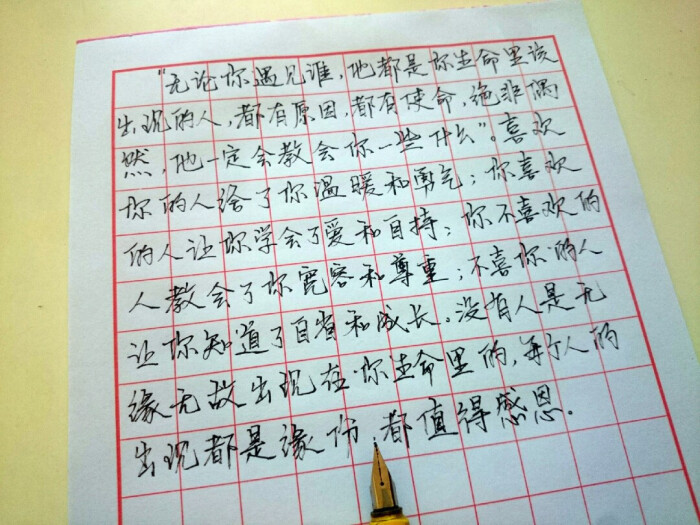 “无论你遇见谁，他都是你生命里该
出现的人，都有原因，都有使命，绝非偶
然，他一定会教会你一些什么”。喜欢
你的人给了你温暖和勇气；你喜欢
的人让你学会了爱和自持；你不喜欢的
人教会了你宽容和尊重；不喜你的人
让你知道了自省和成长。没有人是无
缘无故出现在你生命里的，每个人的
出现都是缘份，都值得感恩．